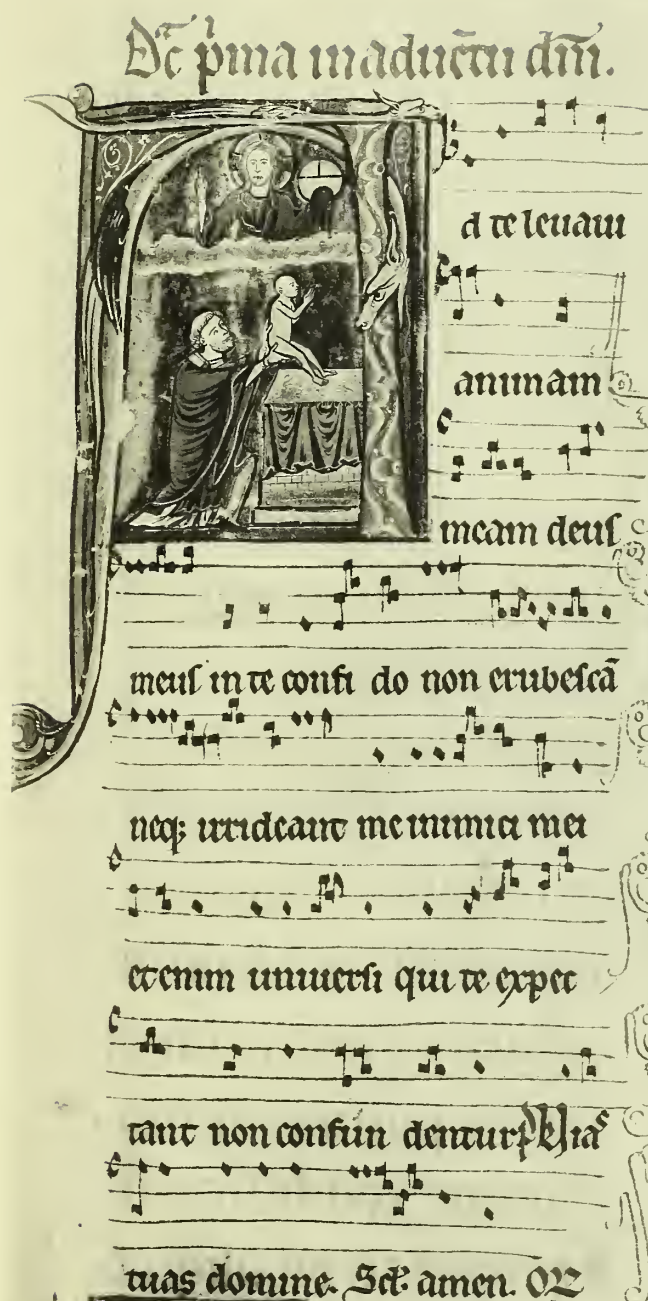 Dc̄ p̍ma in aduētu dm̄.
d te leuaui
animam
meam deus
meus in te confi do non erubescā
neq; irrideant me inimici mei
etenim uniuersi qui te expec
tant non confun dentur. p̄s Vias
tuas domine. Scl̄. amen.